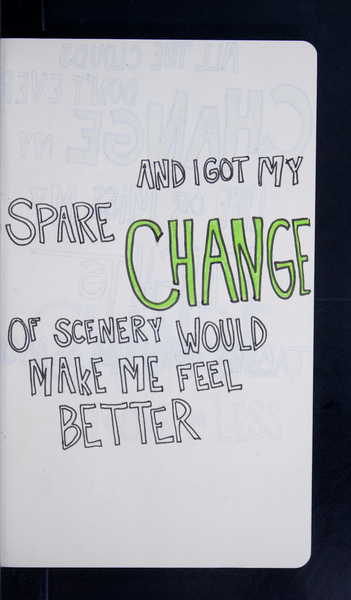 AND I GOT MY
SPARE CHANGE
OF SCENERY WOULD
MAKE ME FEEL
BETTER